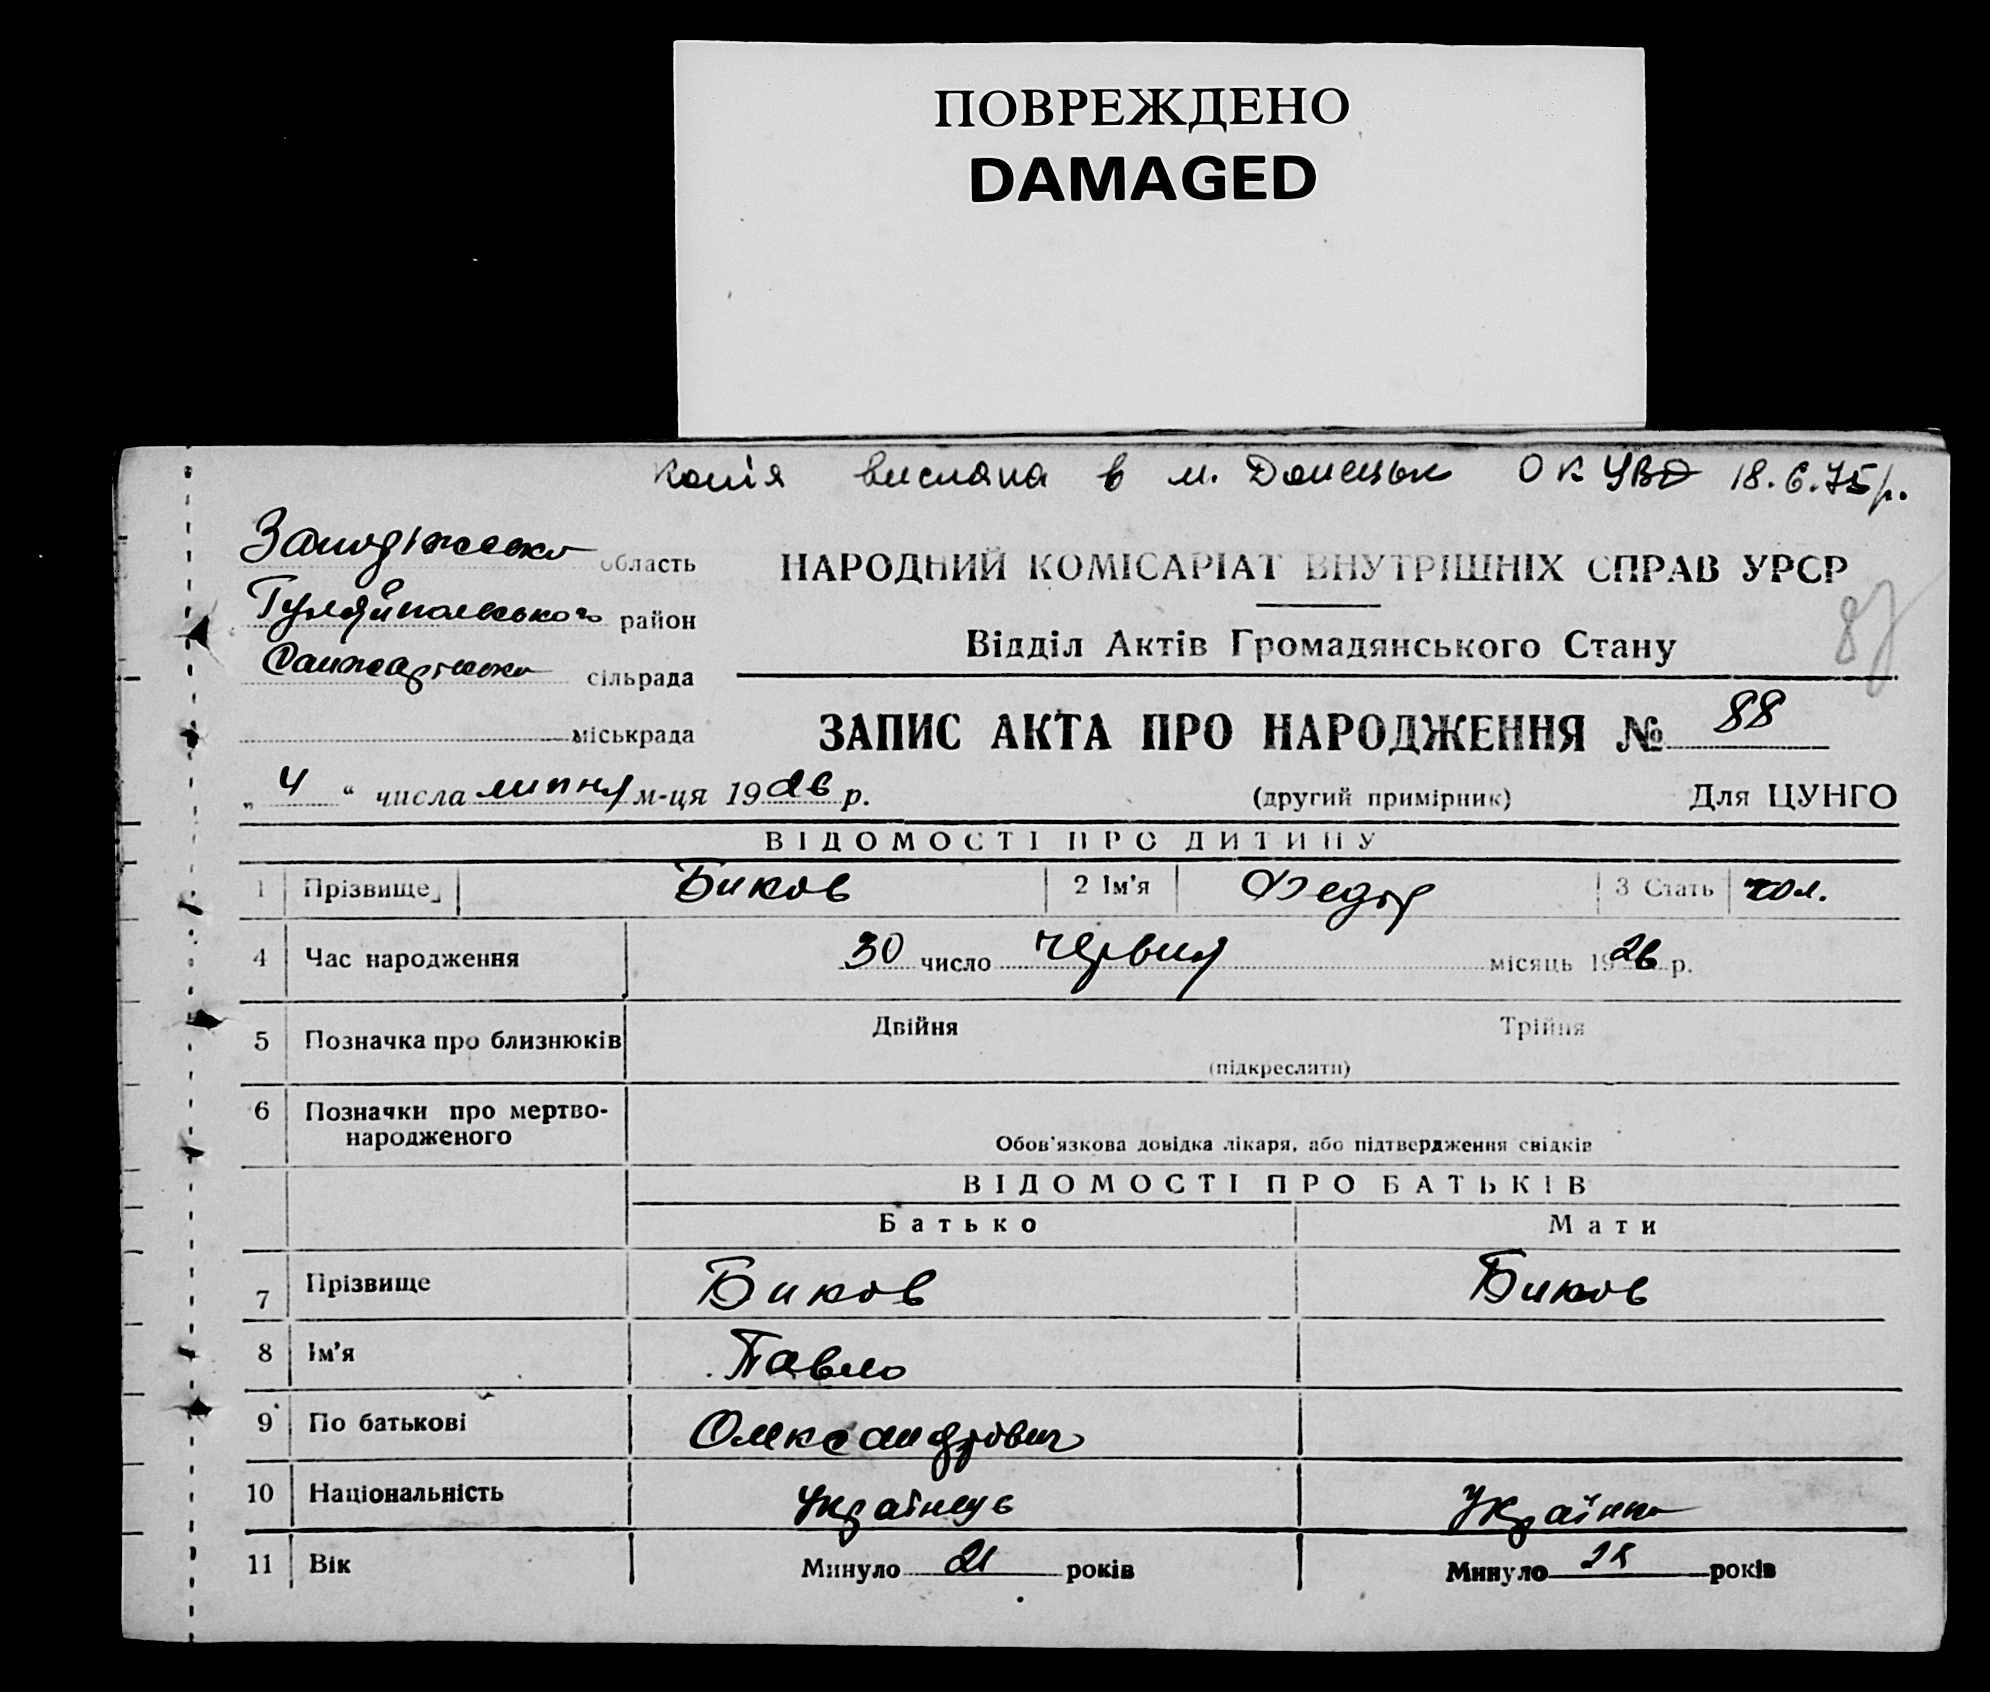 ПОВРЕЖДЕНО
DAMAGED
копія вислана в м. Донецьк ОК УВД 18.6.75р.
Запорізько область
Гуляйпольського район
Санжарівсько сільрада
міськрада
НАРОДНИЙ КОМІСАРІАТ ВНУТРІШНІХ СПРАВ УРСР
87
Відділ Актів Громадянського Стану
ЗАПИС АКТА ПРО НАРОДЖЕННЯ № 88
„ 4 “ числа липня м-ця 1926 р. (другий примірник) Для ЦУНГО
ВІДОМОСТІ ПРО ДИТИНУ
1 Прізвище Биков 2 Ім'я Федір 3 Стать чол.
4 Час народження 30 число червня місяць 1926 р.
5 Позначка про близнюків Двійня Трійня
(підкреслити)
6 Позначки про мертво-
народженого
Обов'язкова довідка лікаря, або підтвердження свідків
ВІДОМОСТІ ПРО БАТЬКІВ
Батько Мати
7 Прізвище Биков Биков
8 Ім'я Павло
9 По батькові Олександрович
10 Національність Українець Українка
11 Вік Минуло 21 років Минуло років